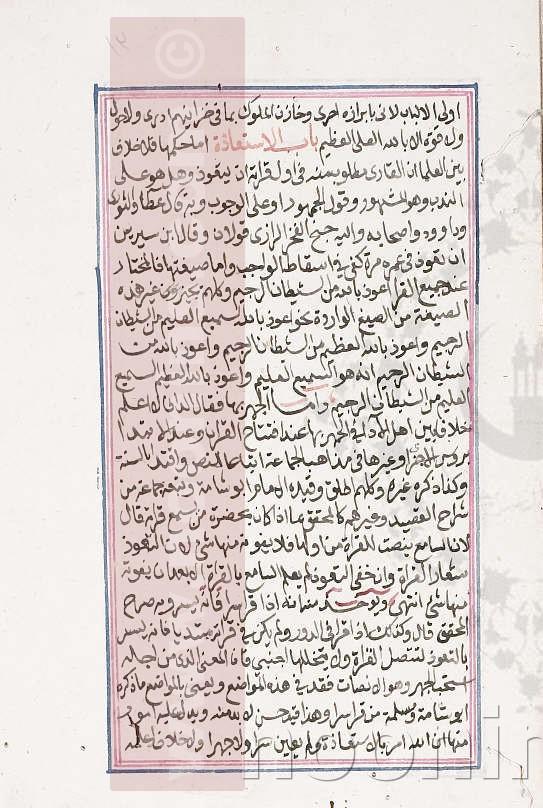 اولى الالباب لانى بابرازه احرى وخازن الملوك بما فى خزاينهم ادرى ولاحول
ولا قوة الا بالله العلى العظيم باب الاستعاذة اما حكمها فلا خلاف
بين العلما ان القارى مطلوب منه فى اول قراته ان يتعوذ وهل هو على
الندب وهو المشهور وقول الجمهور او على الوجوب وبه قال عطا والثورى
وداوود واصحابه واليه جنح الفخر الرازى قولان وقال ابن سيرين
ان تعوذ فى عمره مرة كفى فى اسقاط الواجب واما صيغتها فالمختار
عند جميع القرا اعوذ بالله من الشيطان الرجيم وكلهم يجيزون غير هذه
الصيغة من الصيغ الواردة نحو اعوذ بالله السميع العليم من الشيطان
الرجيم واعوذ بالله العظيم من الشيطان الرجيم واعوذ بالله من
الشيطان الرجيم انه هو السميع العليم واعوذ بالله العظيم السميع
العليم من الشيطان الرجيم واما الجهر بها فقال الدانى لا اعلم
خلافا بين اهل الاداء فى الجهر بها عند افتتاح القران وعند الابتدا
بروس الاجزاء وغيرها فى مذاهب الجماعة اتباعا للنص واقتدا بالسنة
وكذا ذكره غيره وكلهم اطلق وقيده الامام ابو شامة وتبعه جماعة من
شراح القصيد وغيرهم كالمحقق بما اذا كان بحضرة من يسمع قراته قال
لان السامع ينصت للقراة من اولها فلا يفوته منها شى لان التعوذ
شعار القراة وان اخفى التعوذ لم يعلم السامع بالقراة الا بعد ان يفوته
منها شى انتهى ويوخذ منه انه اذا قرا سرا فانه يسر وبه صرح
المحقق قال وكذلك اذا قرا فى الدور ولم يكن فى قراته مبتديا فانه يسر
بالتعوذ لتتصل القراة ولا يتخللها اجنبى فان المعنى الذى من اجله
استحب الجهر وهو الانصات فقد فى هذه المواضع ويعنى بالمواضع ما ذكره
ابو شامة ومسئلة من قرا سرا وهذا قيد حسن لا بد منه ويدل عليه امور
منها ان الله امر بالاستعاذة ولم يعين سرا ولا جهرا ولا خلاف اعلمه